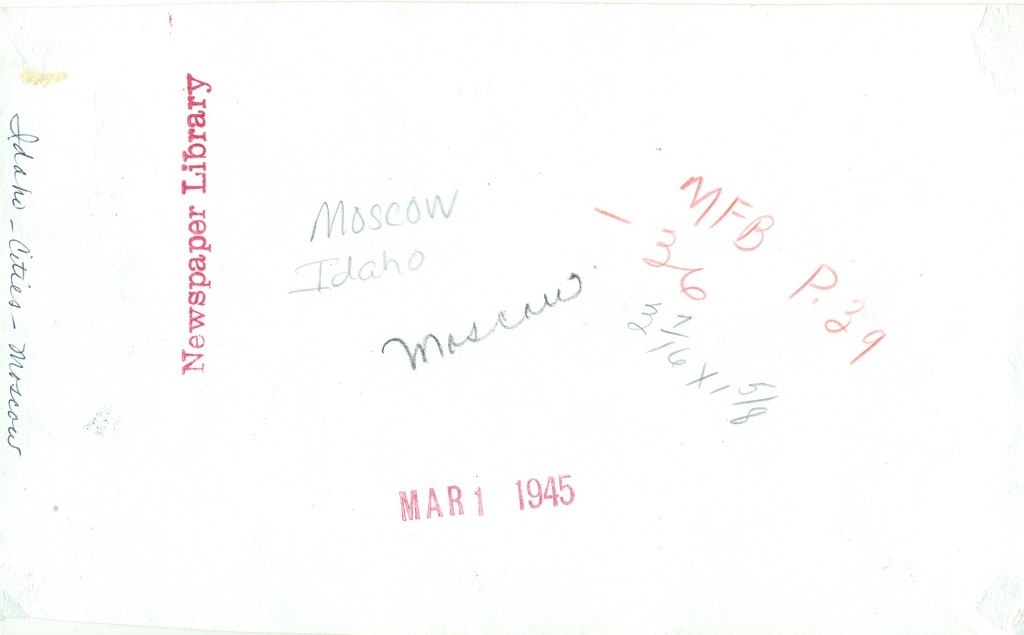 Idaho - Cities - Moscow
Newspaper Library
Moscow
Idaho
Moscow
MFB P.39
- 36
3 7/16 X 1 5/8
MAR 1 1945